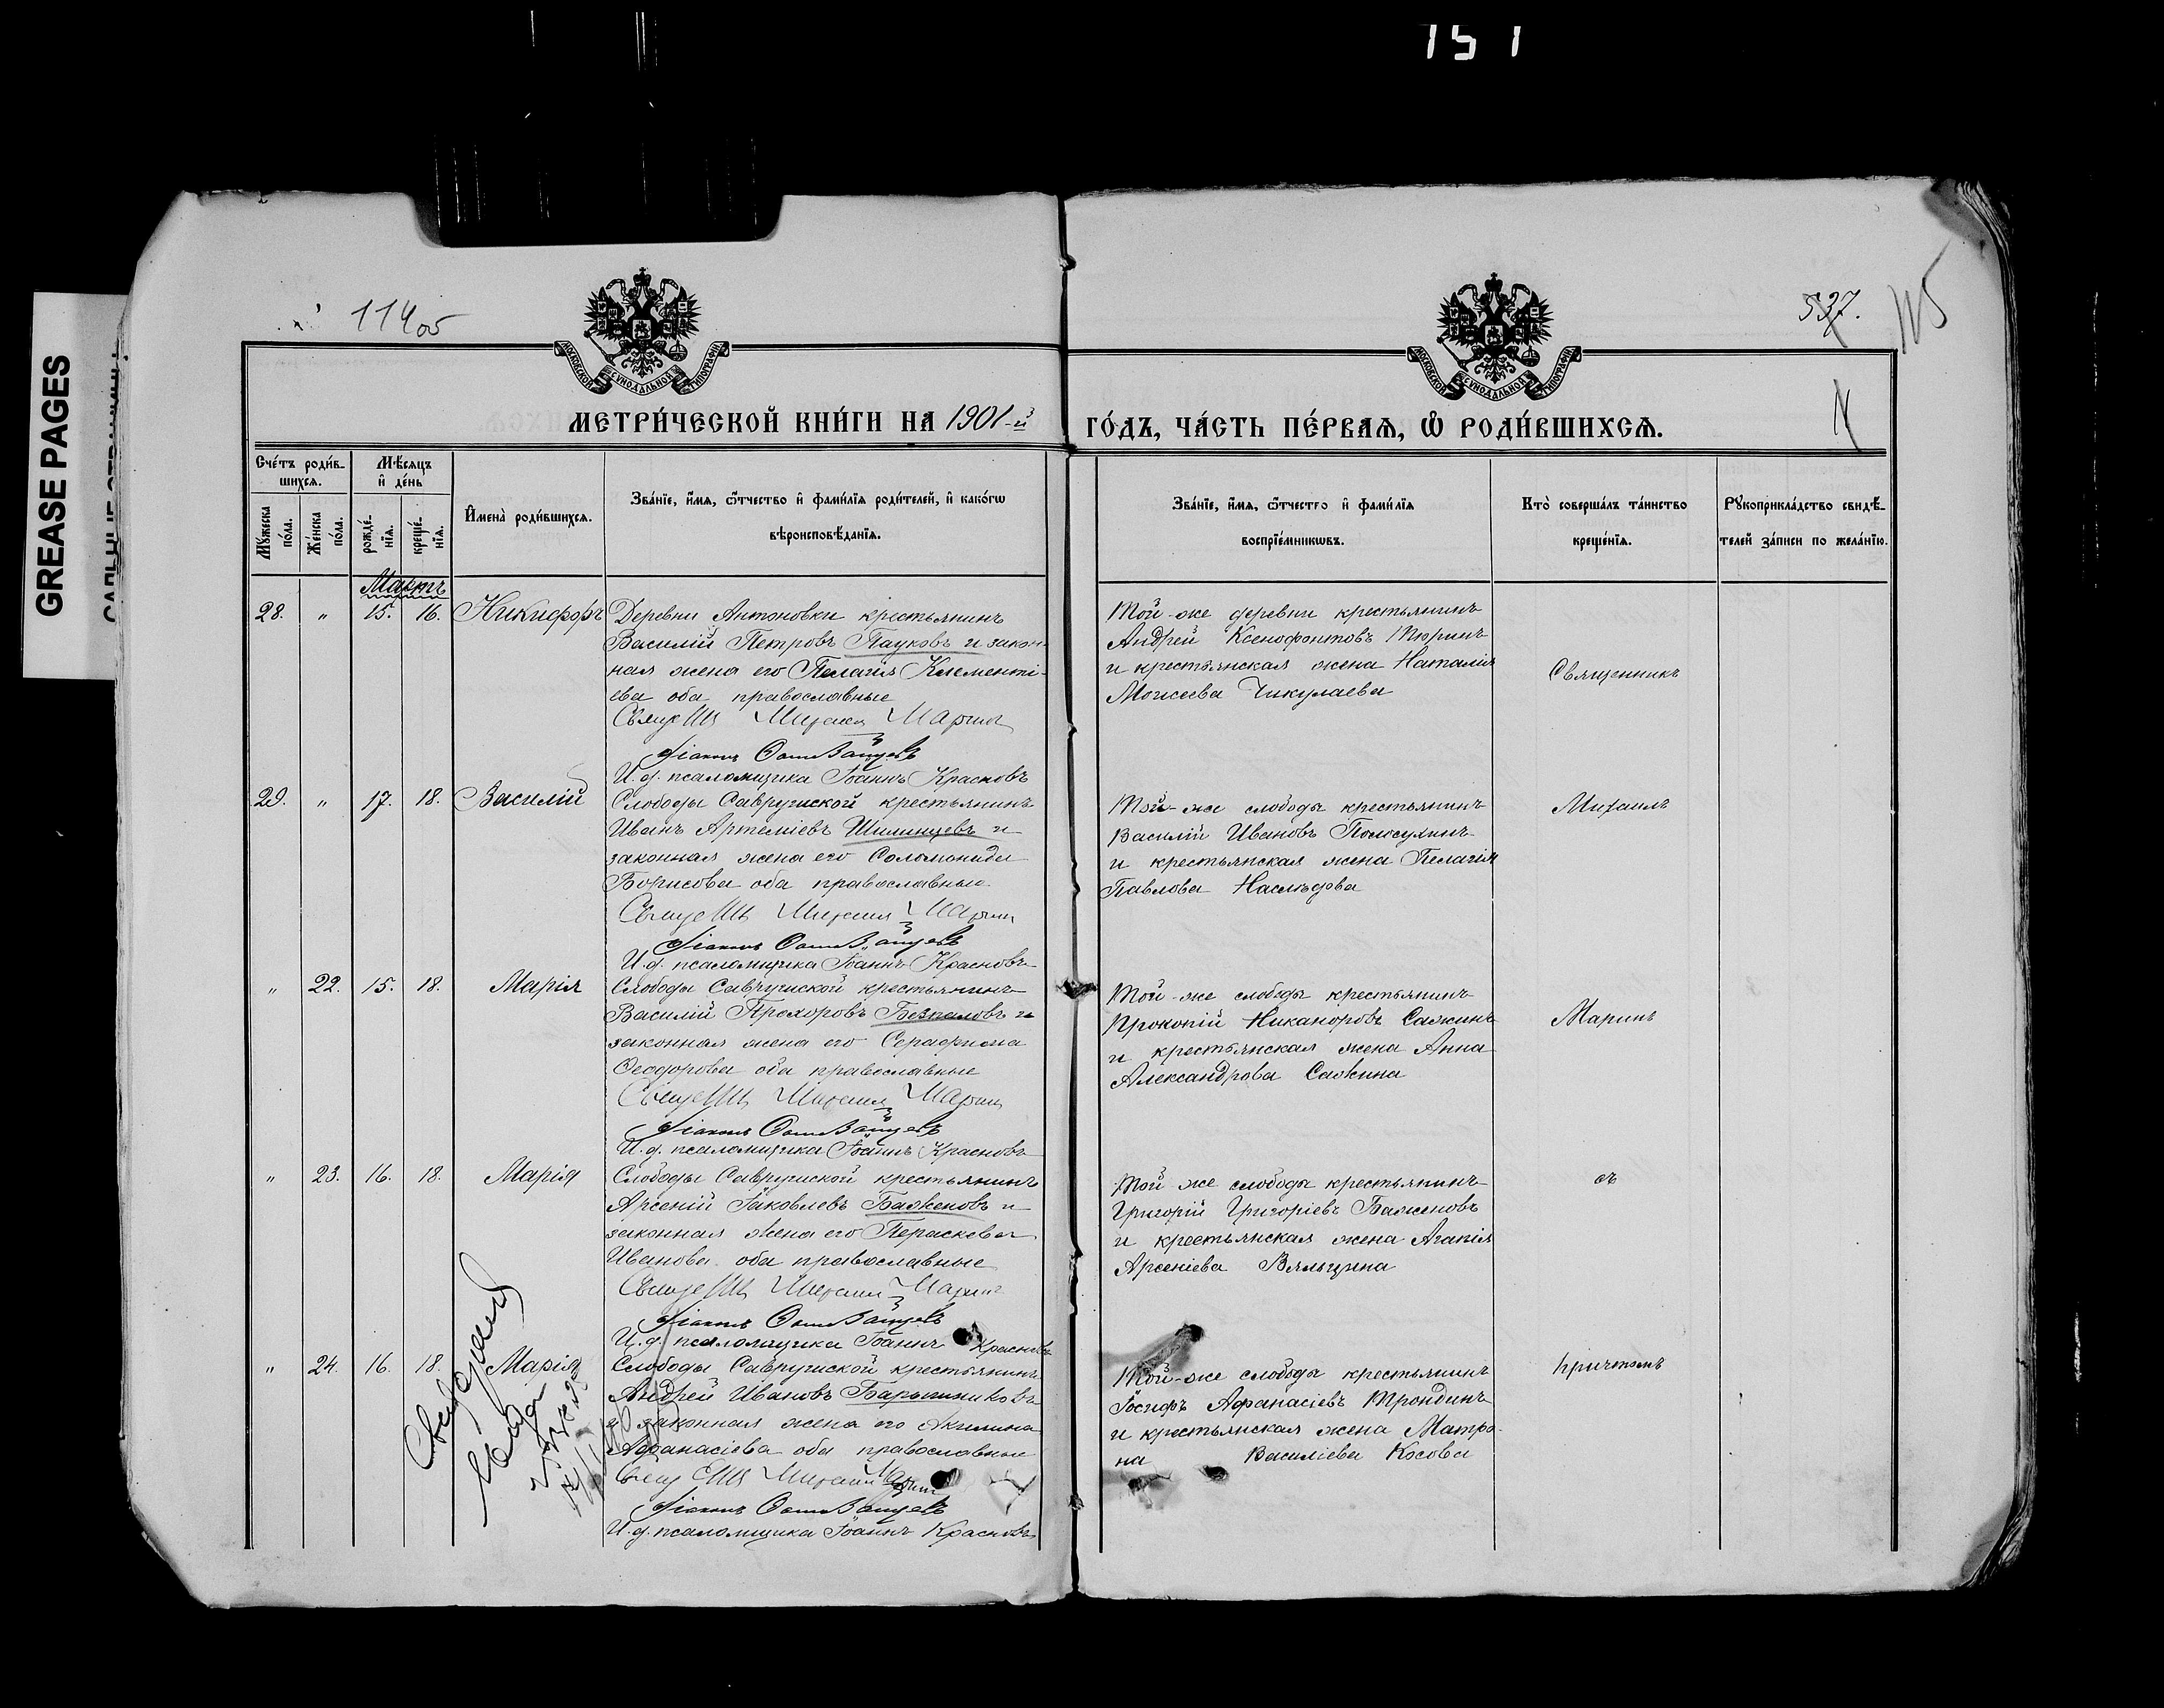 151
GREASE PAGES
114 об
537.
115
МОСКОВСКОЙ СѴНОДАЛЬНОЙ ТИПОГРАФІИ
МОСКОВСКОЙ СѴНОДАЛЬНОЙ ТИПОГРАФІИ
МЕТРИ́ЧЕСКОЙ КНИ́ГИ НА 1901-й
ГО́ДЪ, ЧА́СТЬ ПЕ́РВАѦ, Ѽ РОДИ́ВШИХСѦ.
Сче́тъ роди́в-
шихсѧ.
Мꙋ́жеска
по́ла.
Же́нска
по́ла.
Мѣ́сѧцъ
и҆ де́нь
рожде́-
нїѧ.
креще́-
нїѧ.
И҆мена̀ роди́вшихсѧ.
Зва́нїе, и҆́мѧ, ѻ҆́тчество и҆ фами́лїѧ роди́телей, и҆ како́гѡ
вѣроисповѣ́данїѧ.
Зва́нїе, и҆́мѧ, ѻ҆́тчество и҆ фами́лїѧ
воспрїе́мникѡвъ.
Кто̀ соверша́лъ та́инство
креще́нїѧ.
Рꙋкоприкла́дство свидѣ́-
телей за́писи по жела́нїю.
Мартъ
28. " 15. 16. Никифоръ
Деревни Антоновки крестьянинъ
Василій Петровъ Пауковъ и закон-
ная жена его Пелагія Клементі-
ева оба православные
Священникъ Михаилъ Маринъ
И. д. псаломщика Іоаннъ Красновъ
Той-же деревни крестьянинъ
Андрей Ксенофонтовъ Тюринъ
и крестьянская жена Наталія
Моисеева Чикулаева
Священникъ
29. " 17. 18. Василій
Слободы Саврушской крестьянинъ
Иванъ Артеміевъ Шилинцевъ и
законная жена его Соломонида
Борисова оба православные
Священникъ Михаилъ Маринъ
И. д. псаломщика Іоаннъ Красновъ
Той-же слободы крестьянинъ
Василій Ивановъ Полосухинъ
и крестьянская жена Пелагія
Павлова Наслѣдова
Михаилъ
" 22. 15. 18. Марія
Слободы Саврушской крестьянинъ
Василій Прохоровъ Безпаловъ и
законная жена его Серафима
Ѳеодорова оба православные
Священникъ Михаилъ Маринъ
И. д. псаломщика Іоаннъ Красновъ
Той-же слободы крестьянинъ
Прокопій Никаноровъ Сажинъ
и крестьянская жена Анна
Александрова Сажина
Маринъ
" 23. 16. 18. Марія
Слободы Саврушской крестьянинъ
Арсеній Іаковлевъ Баженовъ и
законная жена его Параскева
Иванова оба православные
Священникъ Михаилъ Маринъ
И. д. псаломщика Іоаннъ Красновъ
Той же слободы крестьянинъ
Григорій Григоріевъ Баженовъ
и крестьянская жена Агапія
Арсеніева Вяльцина
съ
" 24. 16. 18. Марія
Слободы Саврушской крестьянинъ
Андрей Ивановъ Барышниковъ
и законная жена его Акилина
Афанасіева оба православные
Священникъ Михаилъ Маринъ
И. д. псаломщика Іоаннъ Красновъ
Той-же слободы крестьянинъ
Іосифъ Афанасіевъ Трондинъ
и крестьянская жена Матро-
на Василіева Косова
причтомъ